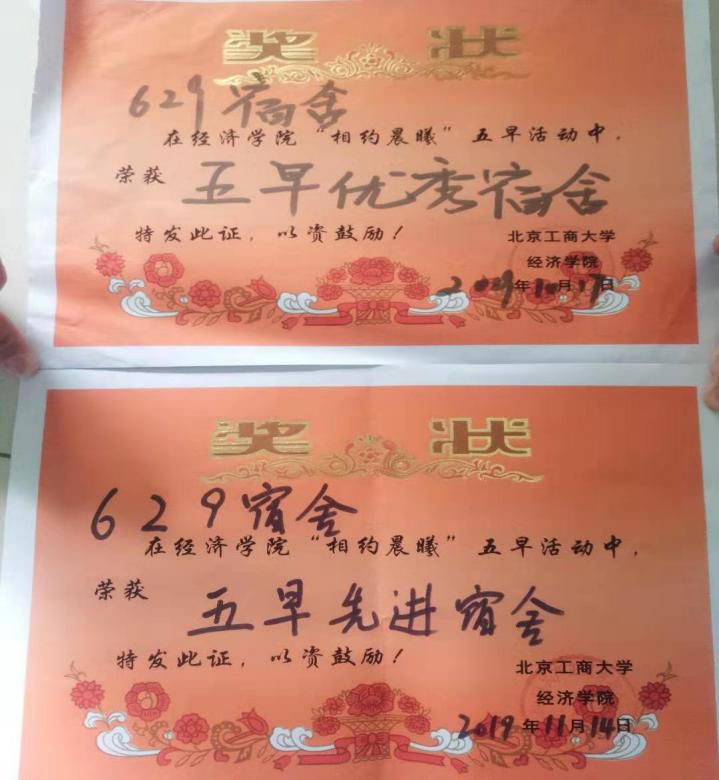 奖 状
629宿舍
在经济学院“相约晨曦”五早活动中，
荣获 五早优秀宿舍
特发此证，以资鼓励！
北京工商大学
经济学院
2019年10月17日
奖 状
629宿舍
在经济学院“相约晨曦”五早活动中，
荣获 五早先进宿舍
特发此证，以资鼓励！
北京工商大学
经济学院
2019年11月14日